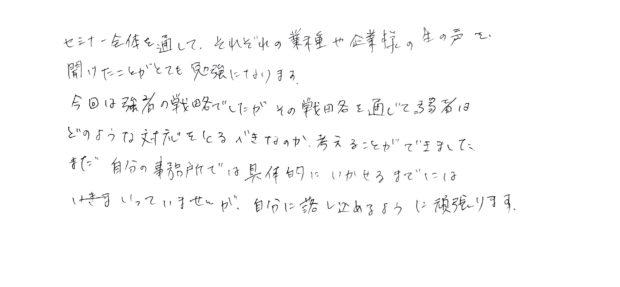 セミナー全体を通して、それぞれの業種や企業様の生の声を、
聞けたことがとても勉強になります。
今回は強者の戦略でしたがその戦略を通じて弱者は
どのような対応をとるべきなのか、考えることができました。
まだ自分の事務所では具体的にいかせるまでには
いっていませんが、自分に落し込めるように頑張ります。